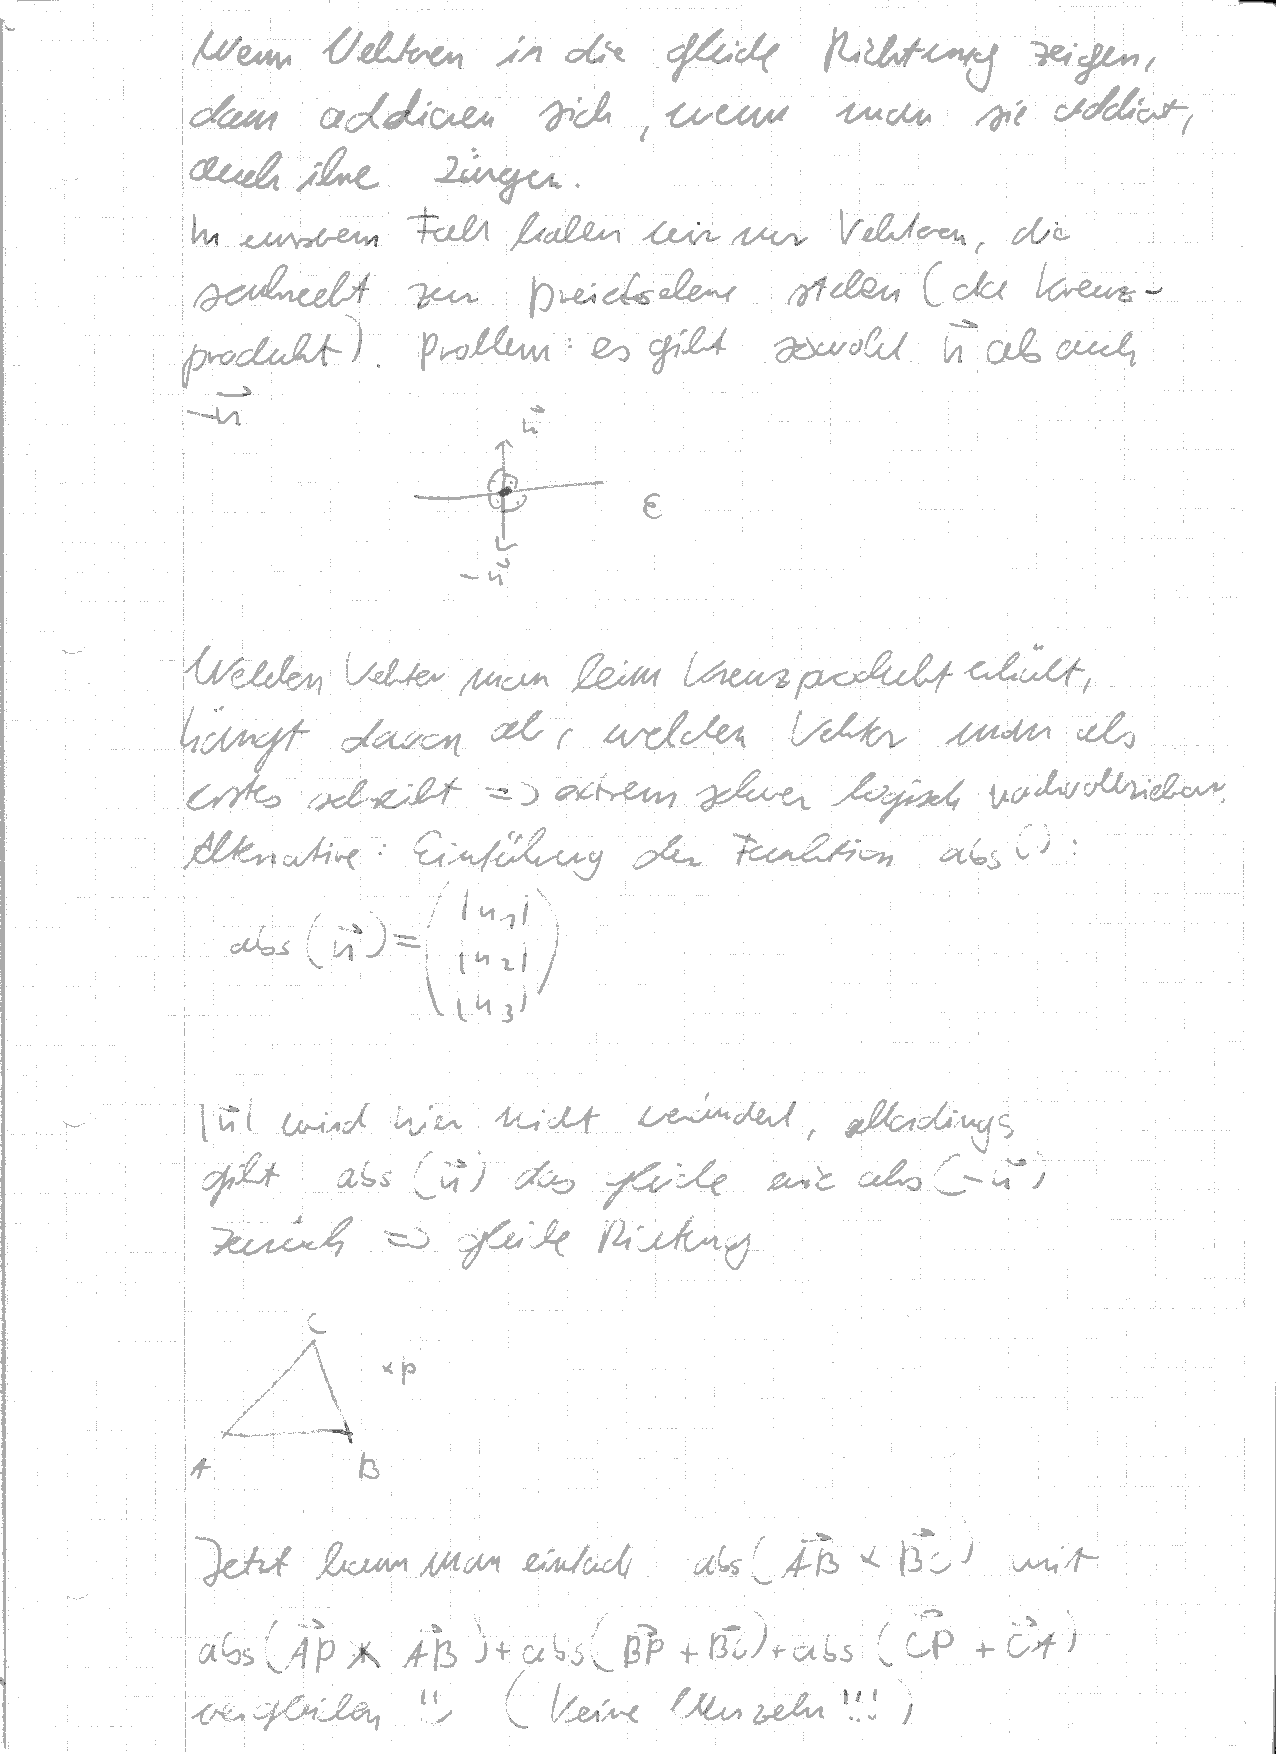 Wenn Vektoren in die gleiche Richtung zeigen,
dann addieren sich, wenn man sie addiert,
auch ihre Längen.
In unserem Fall haben wir nur Vektoren, die
senkrecht zur Dreiecksebene stehen (da Kreuz-
produkt). Problem: es gibt sowohl n⃗ als auch
-n⃗
n⃗
E
-n⃗
Welchen Vektor man beim Kreuzprodukt erhält,
hängt davon ab, welchen Vektor man als
erstes schreibt => extrem schwer logisch nachvollziehbar.
Alternative: Einführung der Funktion abs():
abs(n⃗) = (|n₁| |n₂| |n₃|)
|n⃗| wird hier nicht verändert, allerdings
gibt abs(n⃗) das gleiche wie abs(-n⃗)
zurück => gleiche Richtung
C
x P
A
B
Jetzt kann man einfach abs(A⃗B × B⃗C) mit
abs(A⃗P × A⃗B) + abs(B⃗P + B⃗C) + abs(C⃗P + C⃗A)
vergleichen !! (Keine Wurzeln!!!)